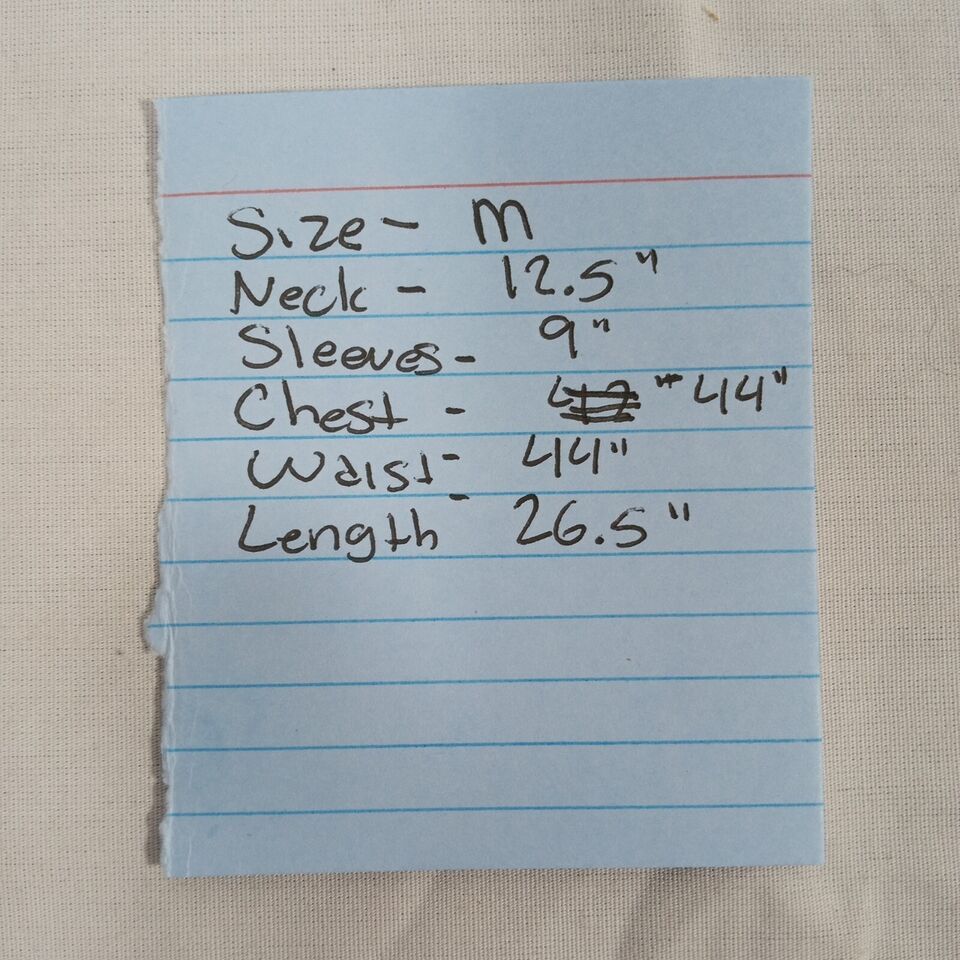 Size - M
Neck - 12.5"
Sleeves - 9"
Chest - " 44"
Waist - 44"
Length - 26.5"